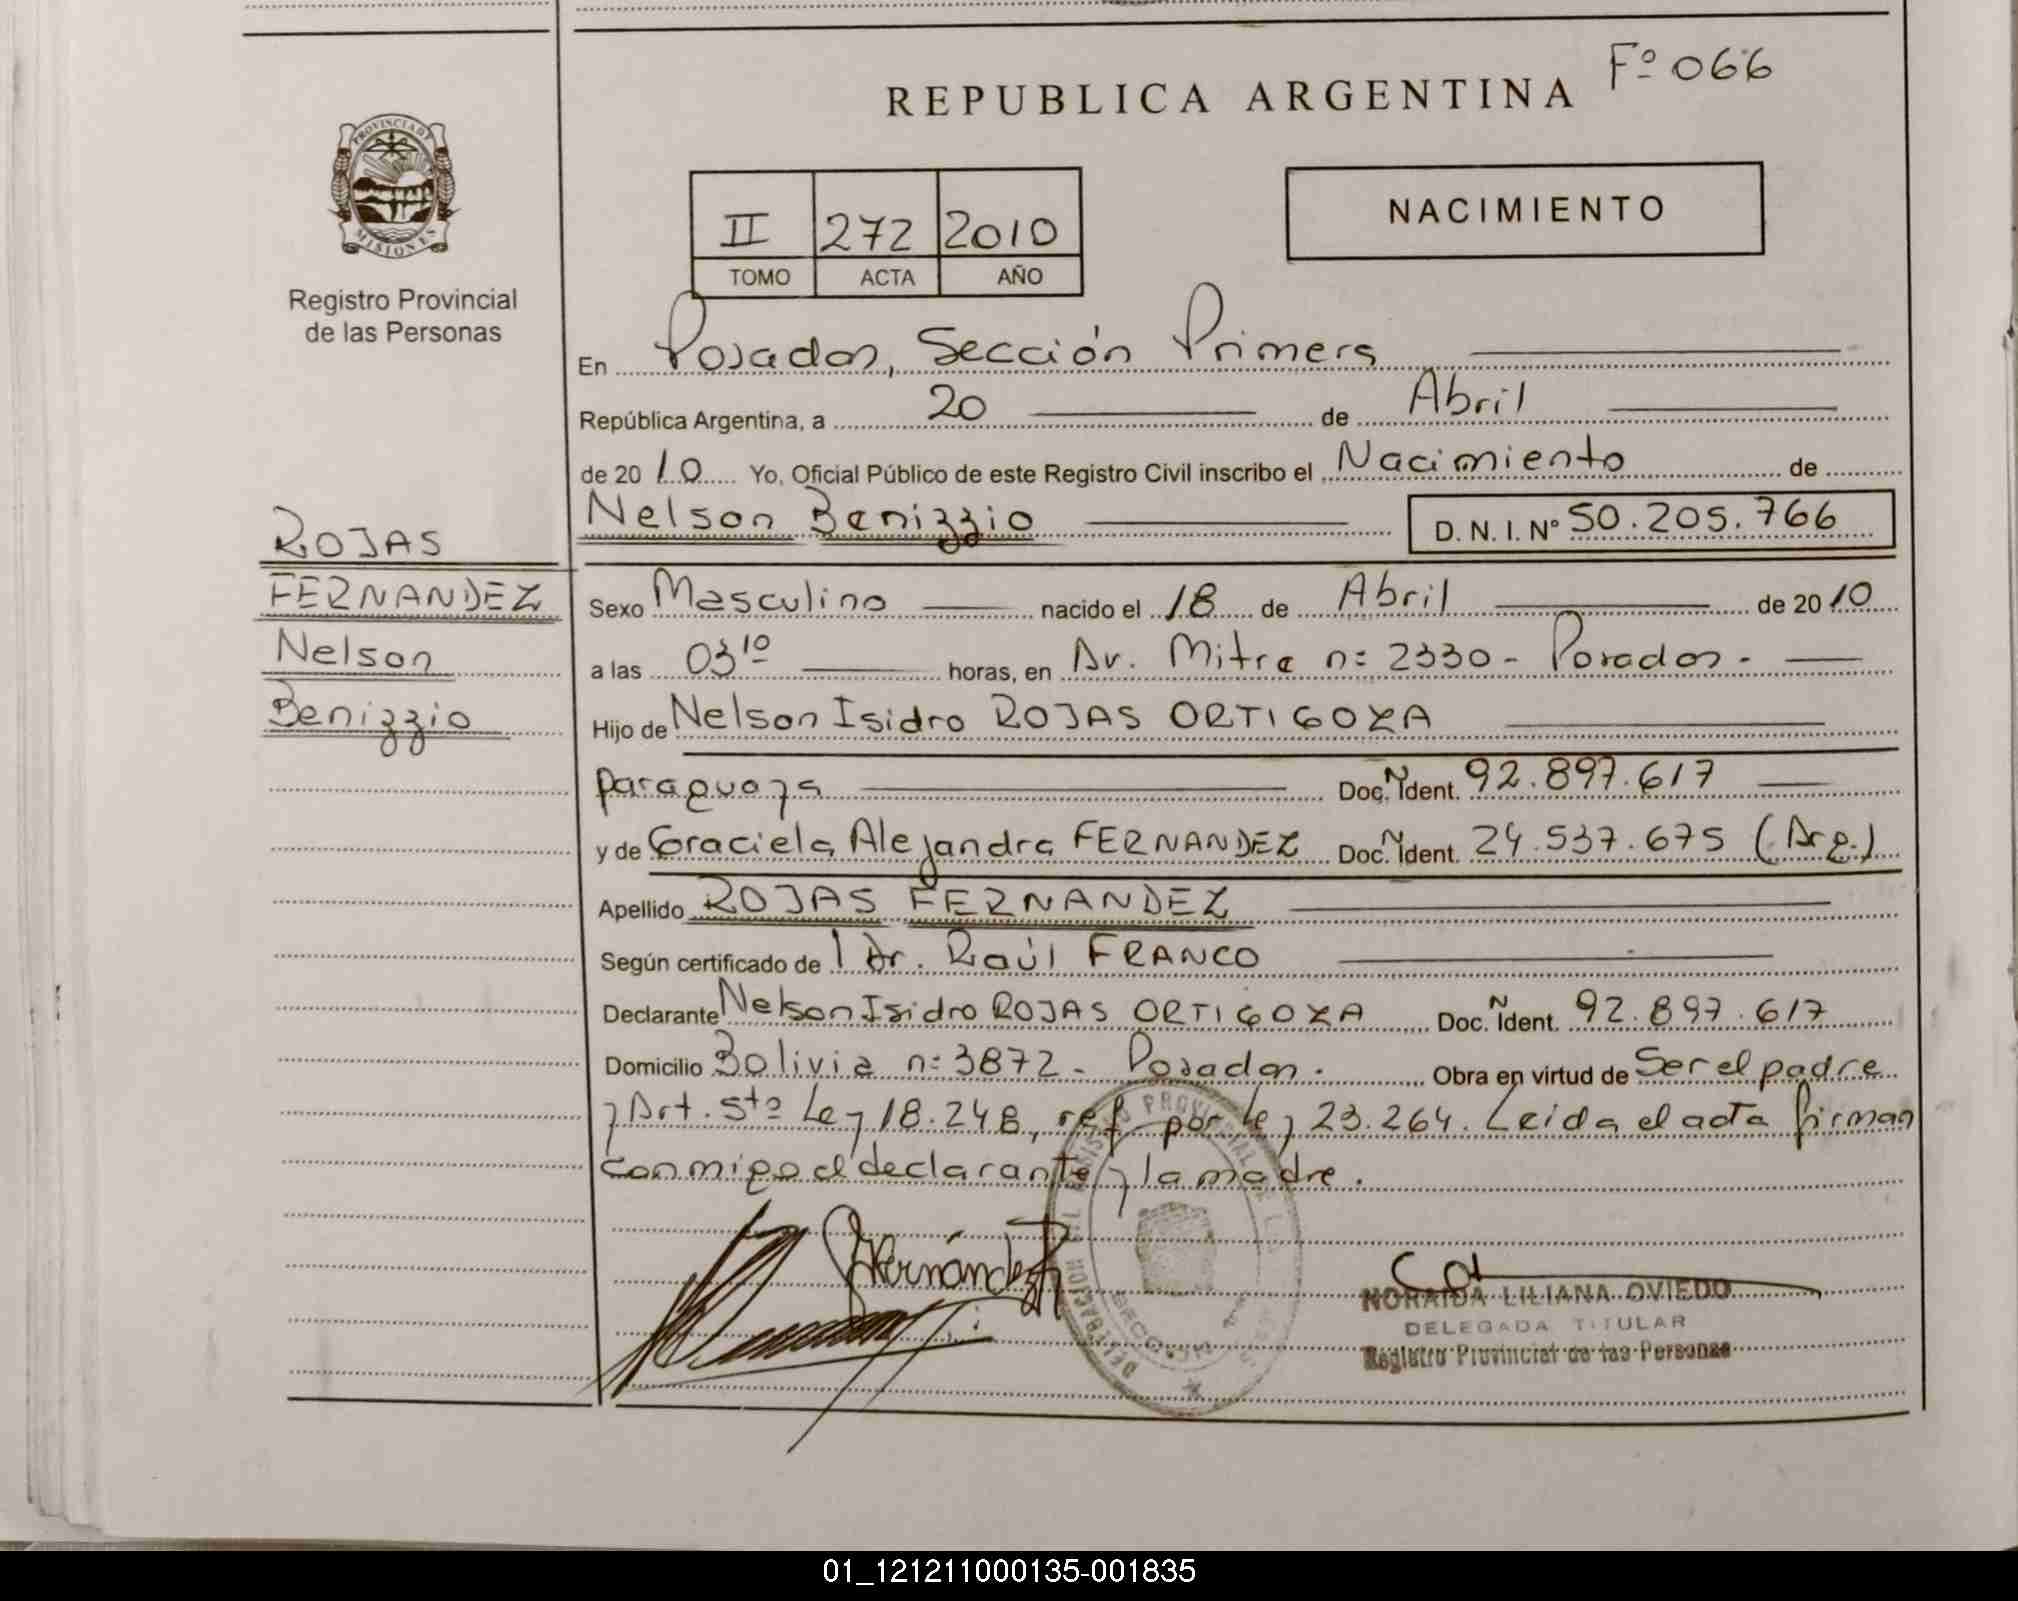 Fº 066
REPUBLICA ARGENTINA
PROVINCIA DE
MISIONES
Registro Provincial
de las Personas
II 272 2010
TOMO ACTA AÑO
NACIMIENTO
En Posadas, Sección Primera
República Argentina, a 20 de Abril
de 2010 Yo, Oficial Público de este Registro Civil inscribo el Nacimiento de
Nelson Benizzio D. N. I. Nº 50.205.766
ROJAS
FERNANDEZ
Nelson
Benizzio
Sexo Masculino nacido el 18 de Abril de 2010
a las 03 10 horas, en Av. Mitre n: 2330 - Posadas -
Hijo de Nelson Isidro ROJAS ORTIGOZA
paraguaya Doc. N Ident. 92.897.617
y de Graciela Alejandra FERNANDEZ Doc. N Ident. 24.537.675 (Arg.)
Apellido ROJAS FERNANDEZ
Según certificado de 1 Dr. Raúl FRANCO
Declarante Nelson Isidro ROJAS ORTIGOZA Doc. N Ident. 92.897.617
Domicilio Bolivia n: 3872 - Posadas. Obra en virtud de Ser el padre
y Art. 5to Ley 18.248, ref. por ley 23.264. Leida el acta firman
conmigo el declarante y la madre.
NORAIDA LILIANA OVIEDO
DELEGADA TITULAR
Registro Provincial de las Personas
01_121211000135-001835